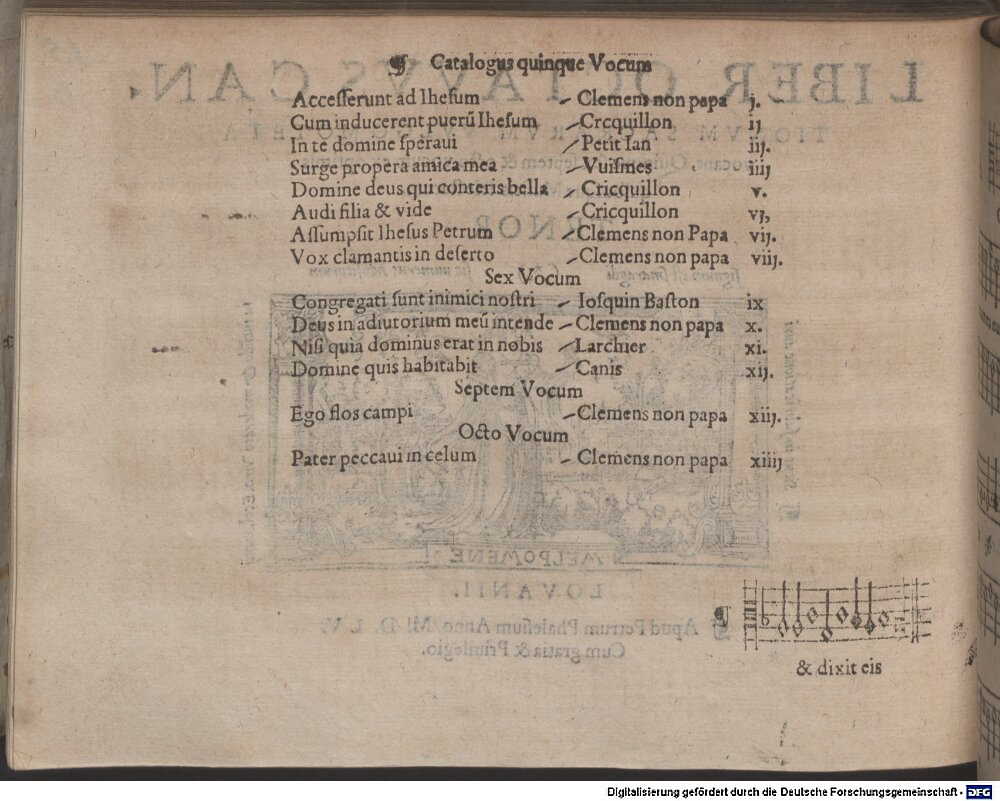 ¶ Catalogus quinque Vocum
Accesserunt ad Ihesum - Clemens non papa j.
Cum inducerent puerū Ihesum - Crcquillon ij
In te domine speraui - Petit Ian iij.
Surge propera amica mea - Vuismes iiij
Domine deus qui conteris bella - Cricquillon v.
Audi filia & vide - Cricquillon vj,
Assumpsit Ihesus Petrum - Clemens non Papa vij.
Vox clamantis in deserto - Clemens non papa viij.
Sex Vocum
Congregati sunt inimici nostri - Iosquin Baston ix
Deus in adiutorium meū intende - Clemens non papa x.
Nisi quia dominus erat in nobis - Larchier xi.
Domine quis habitabit - Canis xij.
Septem Vocum
Ego flos campi - Clemens non papa xiij.
Octo Vocum
Pater peccaui in celum - Clemens non papa xiiij
& dixit eis
LIBER OCTAVVS CAN.
TENOR
MELPOMENE
LOVANII.
Apud Petrum Phalesium Anno M. D. L V.
Cum gratia & Priuilegio.
Digitalisierung gefördert durch die Deutsche Forschungsgemeinschaft - DFG